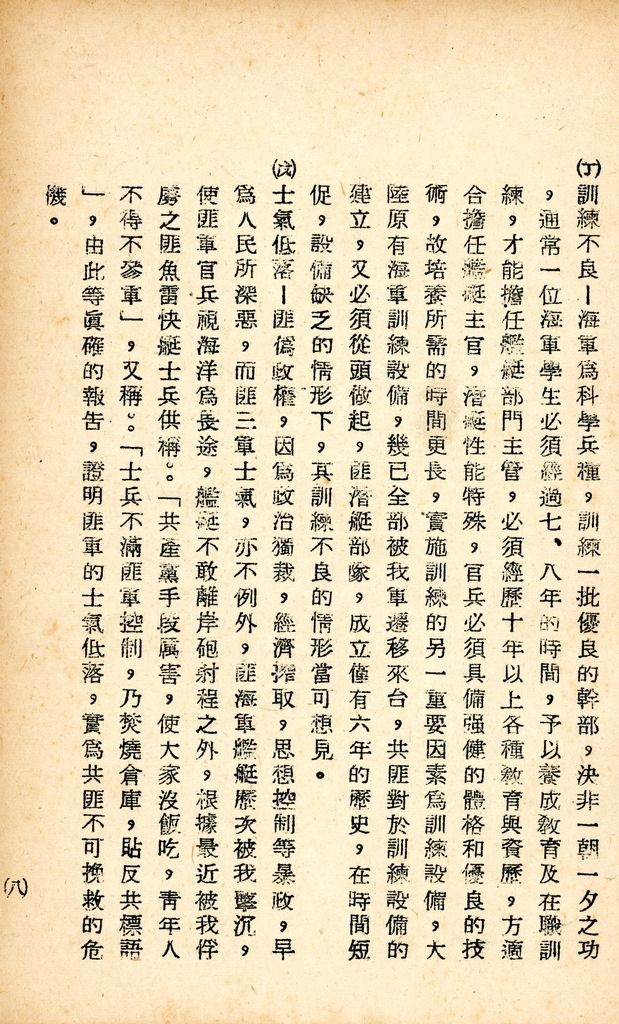 ㈠訓練不良—海軍爲科學兵種，訓練一批優良的幹部，決非一朝一夕之功
，通常一位海軍學生必須經過七、八年的時間，予以養成敎育及在職訓
練，才能擔任艦艇部門主管，必須經歷十年以上各種敎育與資歷，方適
合擔任艦艇主官，潛艇性能特殊，官兵必須具備强健的體格和優良的技
術，故培養所需的時間更長，實施訓練的另一重要因素爲訓練設備，大
陸原有海軍訓練設備，幾已全部被我軍遷移來台，共匪對於訓練設備的
建立，又必須從頭做起，匪潛艇部隊，成立僅有六年的歷史，在時間短
促，設備缺乏的情形下，其訓練不良的情形當可想見。
(戊)士氣低落—匪僞政權，因爲政治獨裁，經濟搾取，思想控制等暴政，早
爲人民所深惡，而匪三軍士氣，亦不例外，匪海軍艦艇歷次被我擊沉，
使匪軍官兵視海洋爲長途，艦艇不敢離岸砲射程之外，根據最近被我俘
虜之匪魚雷快艇士兵供稱。。「共產黨手段厲害，使大家沒飯吃，靑年人
不得不參軍」，又稱。。「士兵不滿匪軍控制，乃焚燒倉庫，貼反共標語
」，由此等眞確的報告，證明匪軍的士氣低落，實爲共匪不可挽救的危
機。
(八)